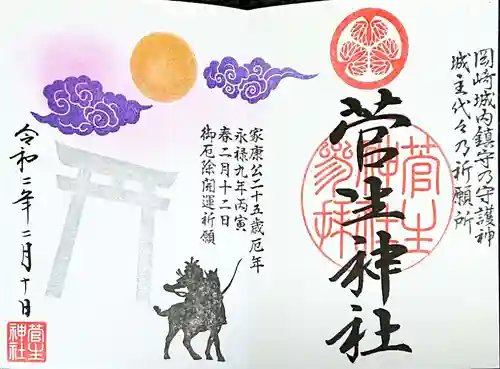 岡崎城内鎮守乃守護神
城主代々乃祈願所
菅生神社
菅生
神社
参拝
家康公二十五歳厄年
永禄九年丙寅
春二月十二日
御厄除開運祈願
令和二年二月十日
菅生
神社